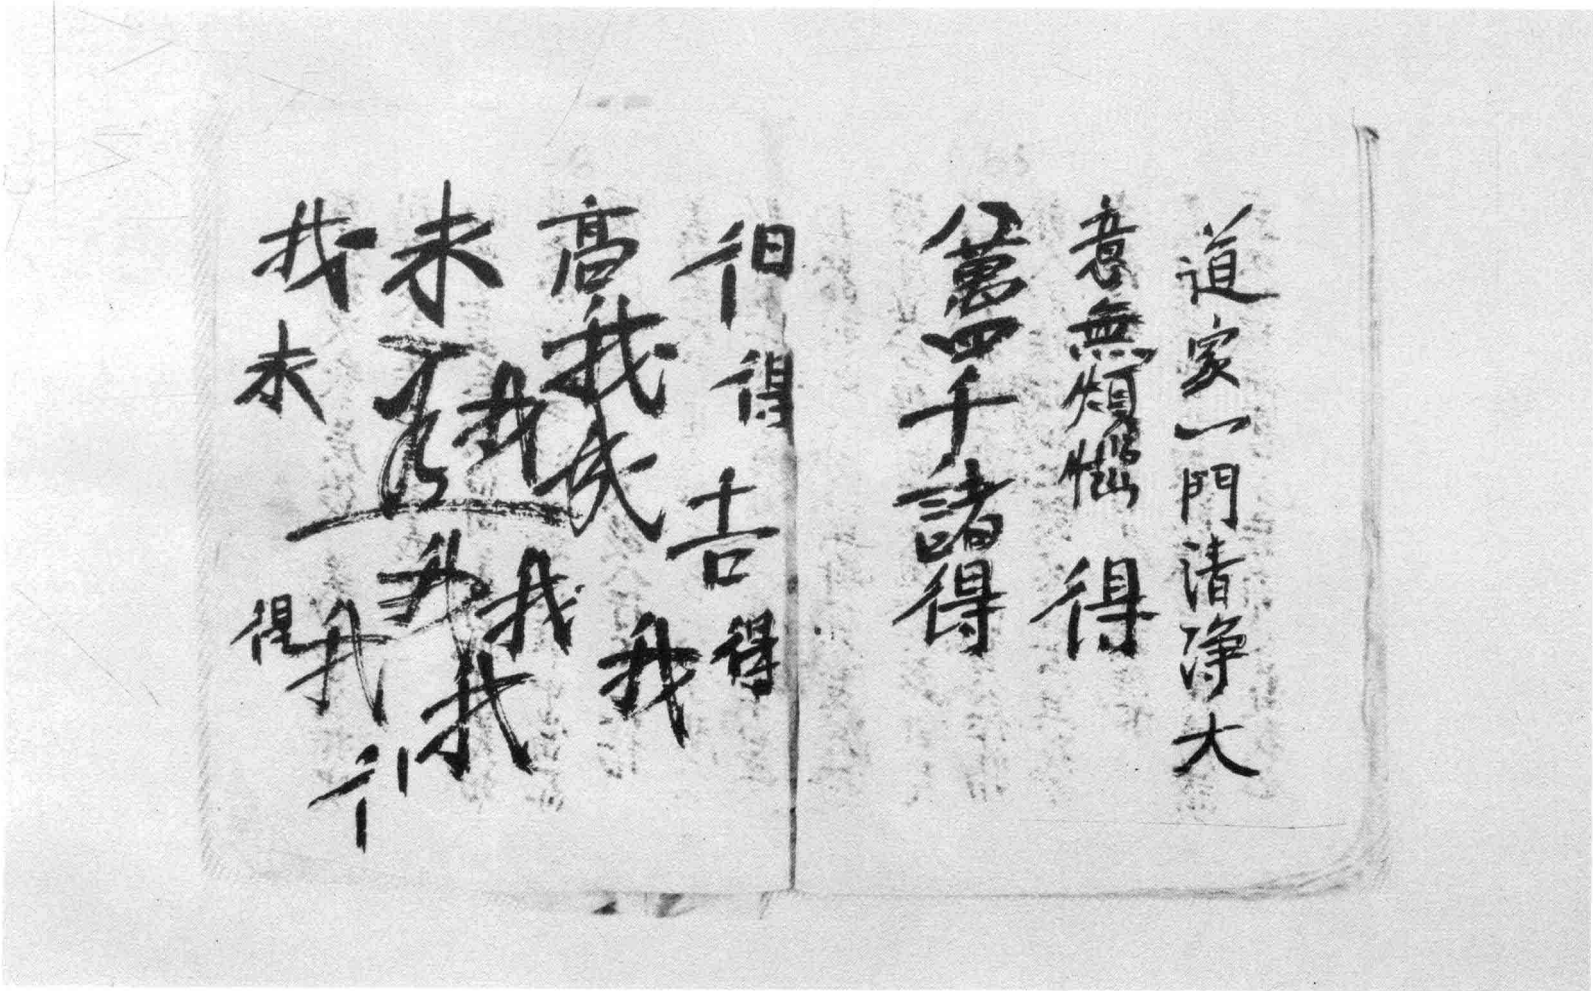 道家一門清净大
意無煩惱得
八萬四千諸得
得
吉
得
高
我
我
未
我
我
我
我
未
得
我